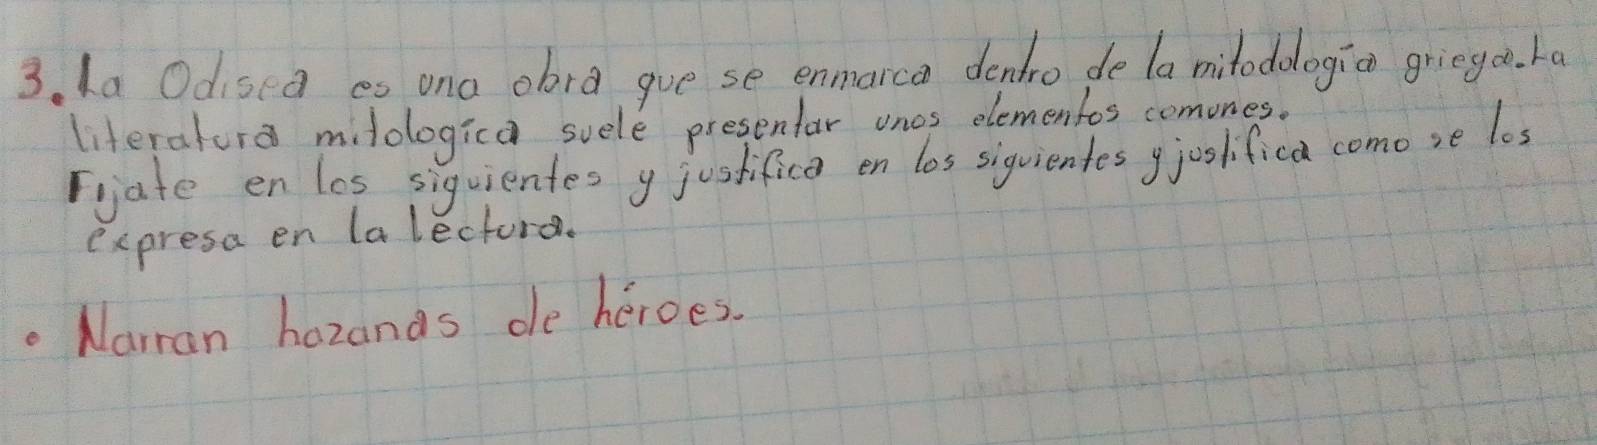 3. La Odisea es una obra que se enmarca dentro de la mitodología griega. La
literatura mitologíca suele presentar unos elementos comunes.
Fijate en los siguientes y justifica en los siguientes y justifica como se los
expresa en la lectura.
• Narran hazanas de héroes.